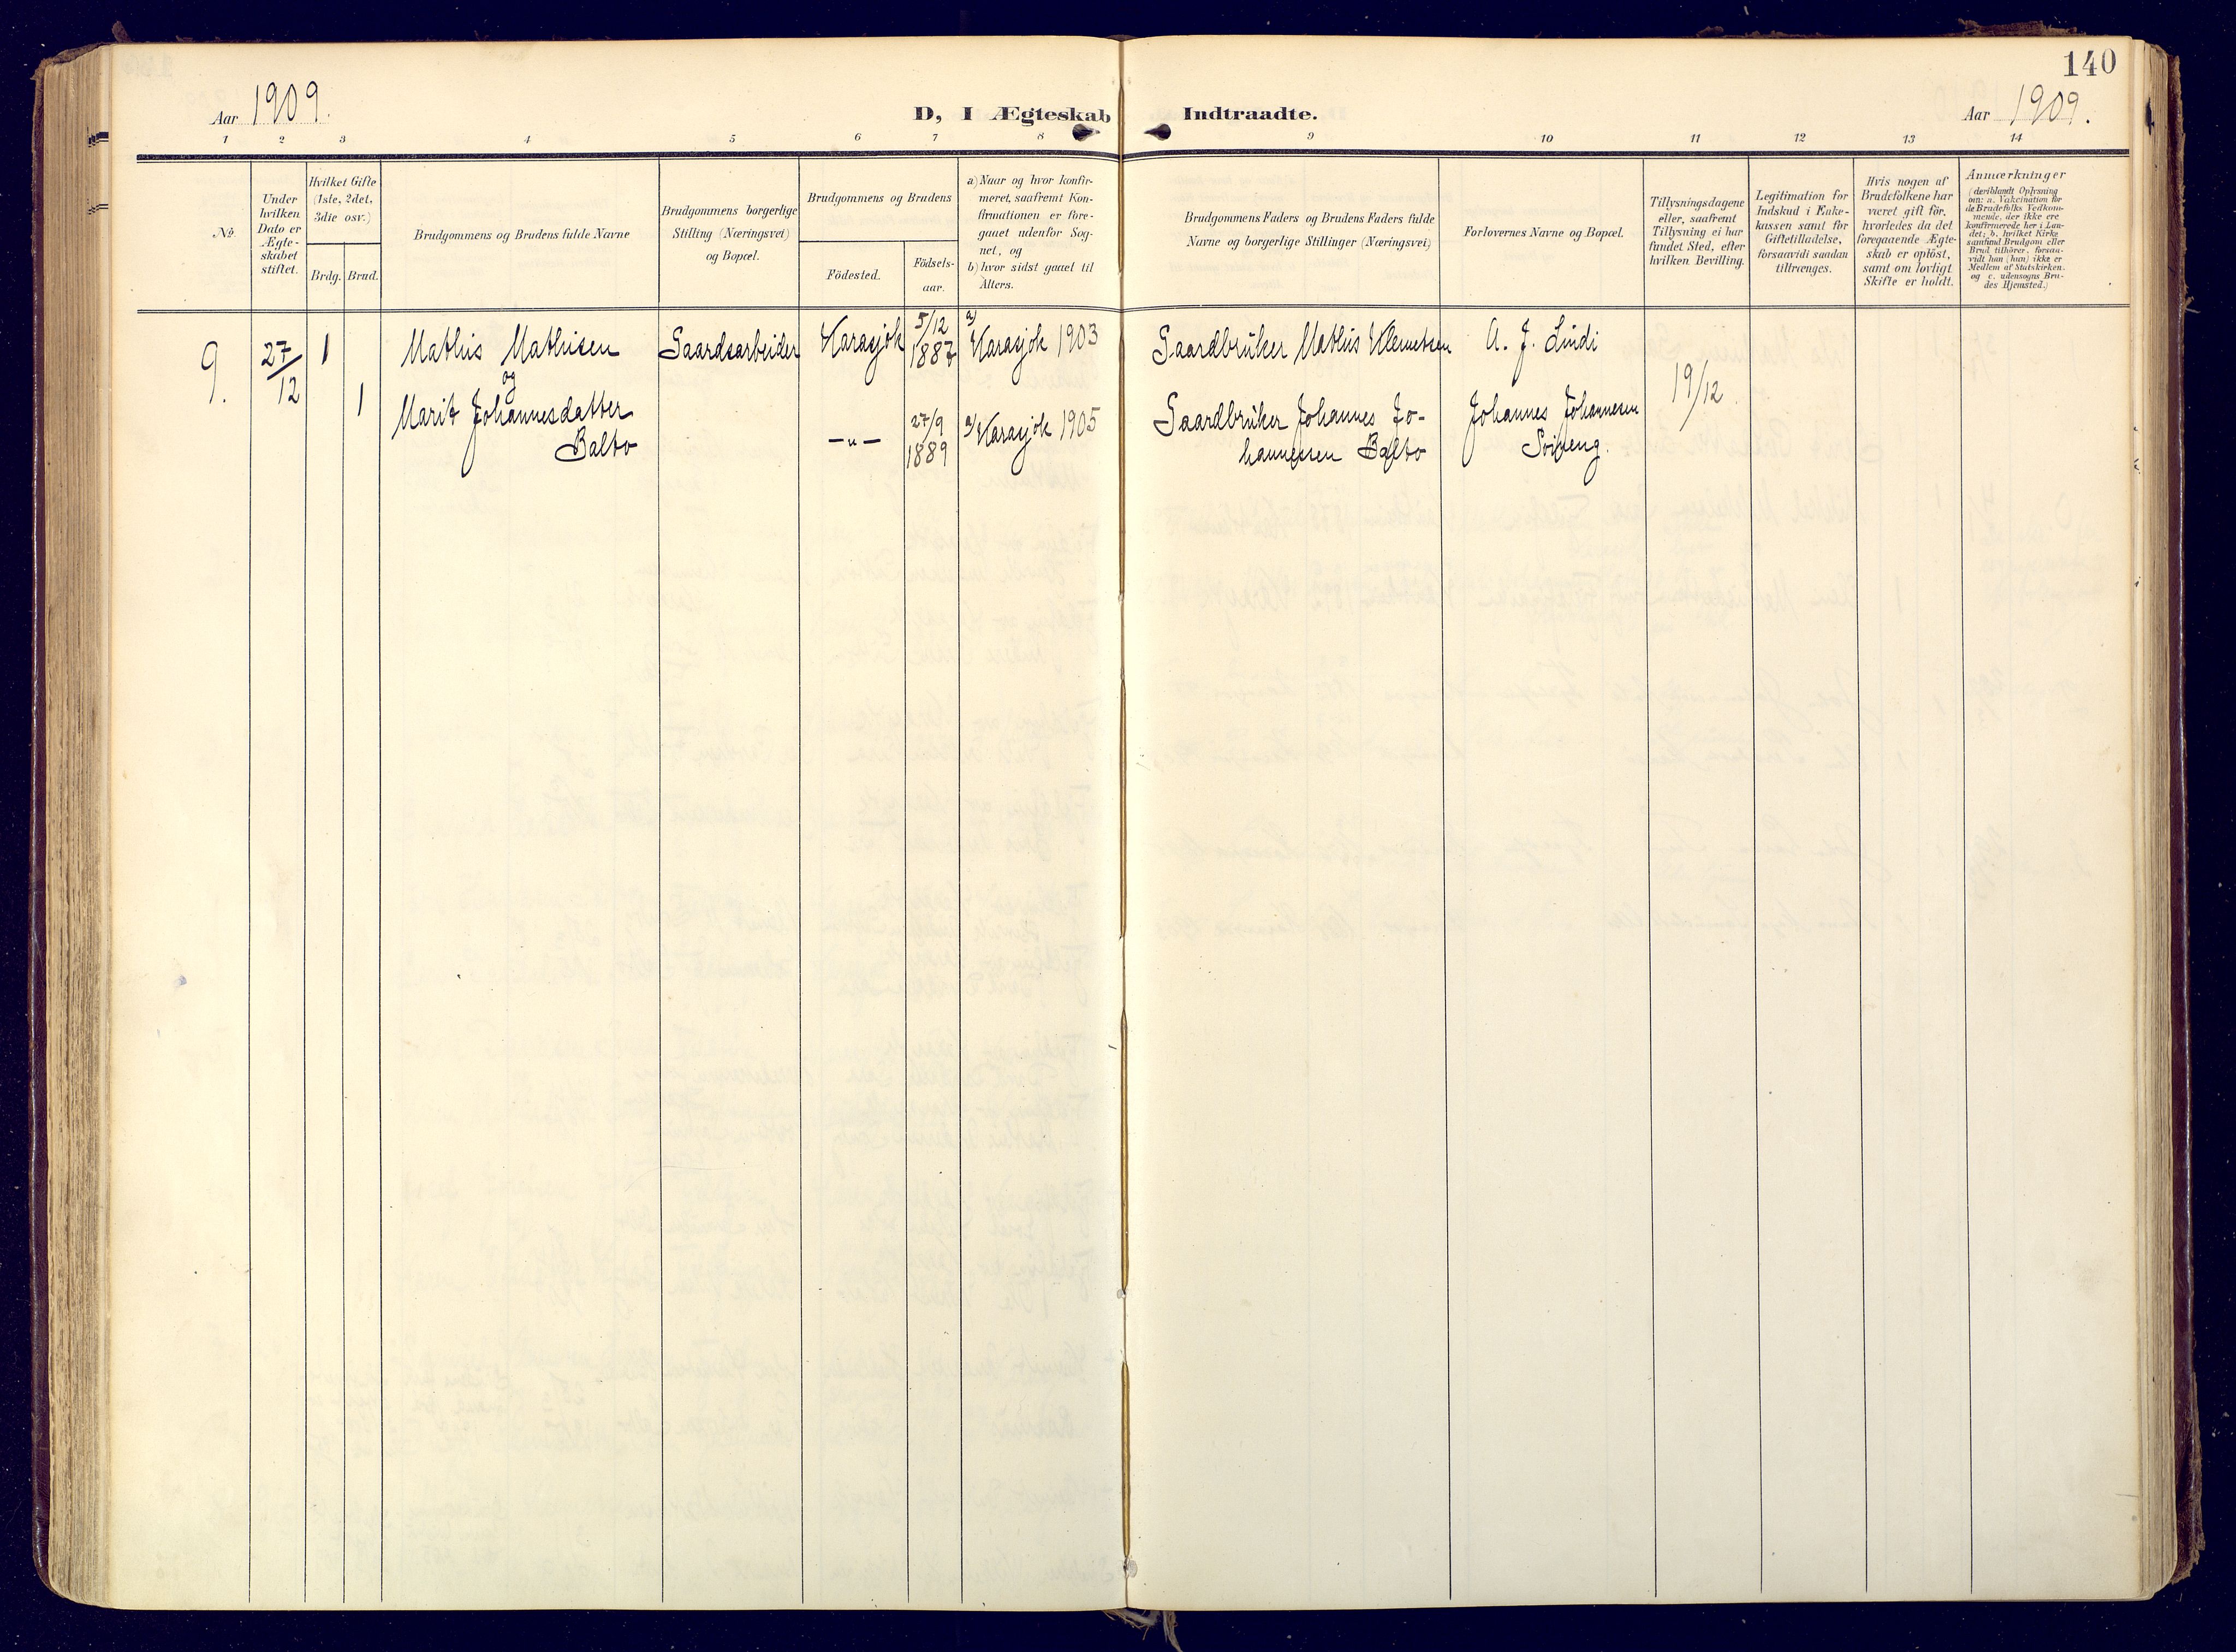 140
Aar 1909.
D, I Ægteskab Indtraadte.
Aar 1909.
1 2 3 4 5 6 7 8 9 10 11 12 13 14
No.
Under
hvilken
Dato er
Ægte-
skabet
stiftet.
Hvilket Gifte
(1ste, 2det,
3die osv.)
Brdg. Brud.
Brudgommens og Brudens fulde Navne
Brudgommens borgerlige
Stilling (Næringsvei)
og Bopæl.
Brudgommens og Brudens
Födested.
Födsels-
aar.
a) Naar og hvor konfir-
meret, saafremt Kon-
firmationen er fore-
gaaet udenfor Sog-
net, og
b) hvor sidst gaaet til
Alters.
Brudgommens Faders og Brudens Faders fulde
Navne og borgerlige Stillinger (Næringsvei)
Forlovernes Navne og Bopæl.
Tillysningsdagene
eller, saafremt
Tillysning ei har
fundet Sted, efter
hvilken Bevilling.
Legitimation for
Indskud i Enke-
kassen samt for
Giftetilladelse,
forsaavidt saadan
tiltrænges.
Hvis nogen af
Brudefolkene har
været gift för,
hvorledes da det
foregaaende Ægte-
skab er oplöst,
samt om lovligt
Skifte er holdt.
Anmærkninger
(deriblandt Oplysning
om: a. Vakcination for
de Brudefolks Vedkom-
mende, der ikke ere
konfirmerede her i Lan-
det; b. hvilket Kirke
samfund Brudgom eller
Brud tilhörer, forsaa-
vidt han (hun) ikke er
Medlem af Statskirken.
og c. udensogns Bru-
des Hjemsted.)
9. 27/12 1 Mathis Mathisen Gaardsarbeider Karasjok 5/12 1887 a) Karasjok 1903 Gaardbruker Mathis Klemetsen A. J. Lindi
og
19/12
1 Marit Johannesdatter
Balto
-„- 27/9 1889 a) Karasjok 1905
Gaardbruker Johannes Jo-
hannessen Balto
Johannes Johannesen